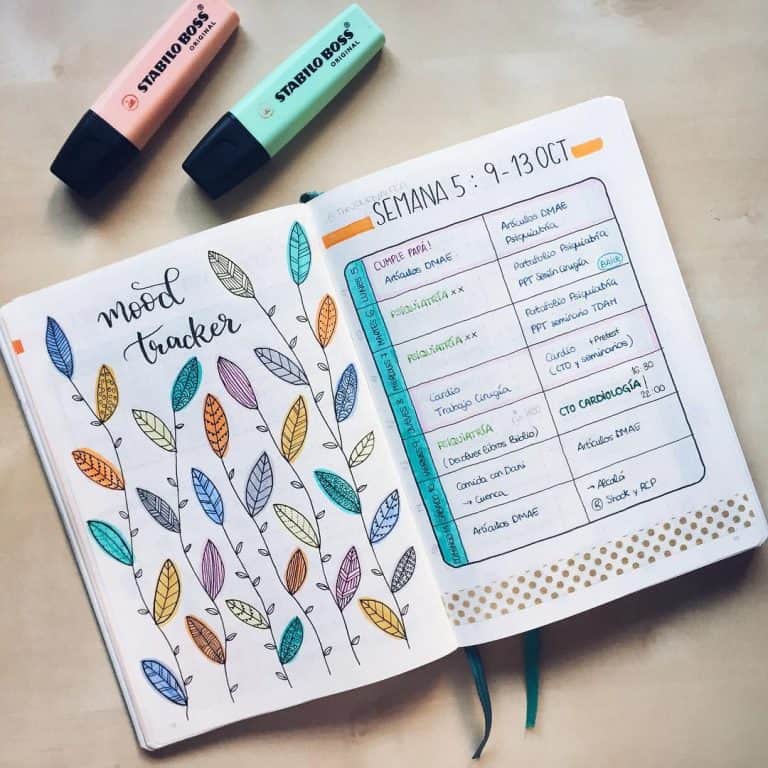 STABILO BOSS
ORIGINAL
STABILO BOSS
ORIGINAL
mood
tracker
SEMANA 5: 9-13 OCT
CUMPLE PAPÁ!
Artículos DMAE
Artículos DMAE
Psiquiatría
PSIQUIATRÍA xx
Portafolio Psiquiatría
PPT Sesión Cirugía
PSIQUIATRÍA xx
Portafolio Psiquiatría
PPT seminario TDAH
Cardio
Trabajo Cirugía
Cardio + Pretest
(CTO y seminarios)
PSIQUIATRÍA
(Devolver libros Biblio)
CTO CARDIOLOGÍA
16:30
22:00
Comida con Dani
→ Cuenca
Artículos DMAE
Artículos DMAE
→ Alcalá
R Shock y RCP